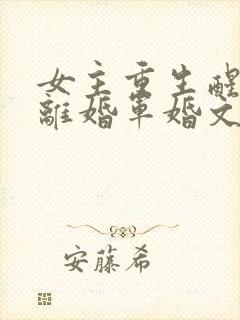 女主重生醒
離婚軍婚文
安藤希